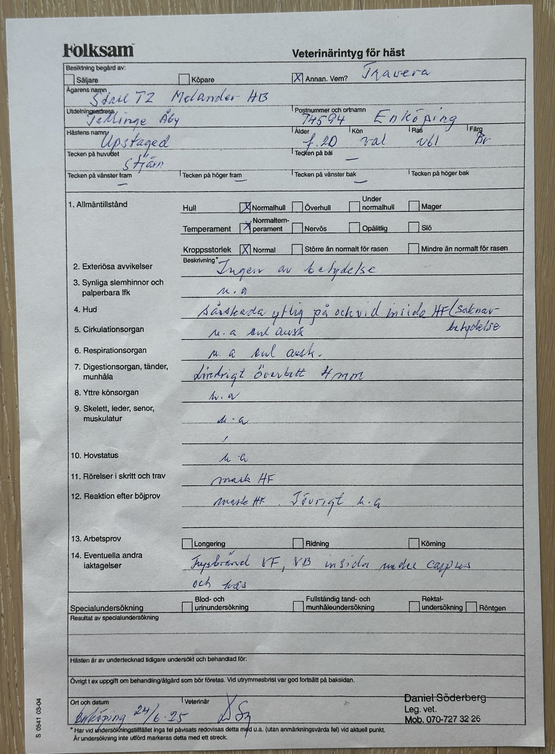 Folksam
Veterinärintyg för häst
Besiktning begärd av:
Säljare Köpare Annan. Vem? Travera
Ägarens namn
Stall TZ Melander HB
Utdelningsadress Postnummer och ortnamn
Tellinge Åby 74594 Enköping
Hästens namn Ålder Kön Ras Färg
Upstaged f.20 val vbl Br
Tecken på huvudet Tecken på bål
Stjärn —
Tecken på vänster fram Tecken på höger fram Tecken på vänster bak Tecken på höger bak
— — —
1. Allmäntillstånd Hull Normalhull Överhull Under normalhull Mager
Temperament Normaltem-perament Nervös Opålitlig Slö
Kroppsstorlek Normal Större än normalt för rasen Mindre än normalt för rasen
Beskrivning*
2. Exteriösa avvikelser Ingen av betydelse
3. Synliga slemhinnor och
palperbara lfk u.a
4. Hud Sårskada ytlig på och vid insida HF (saknar
betydelse
5. Cirkulationsorgan u.a enl ausk
6. Respirationsorgan u.a enl ausk.
7. Digestionsorgan, tänder,
munhåla Lindrigt överbett 4mm
8. Yttre könsorgan u.a
9. Skelett, leder, senor,
muskulatur u.a
10. Hovstatus u.a
11. Rörelser i skritt och trav mask HF
12. Reaktion efter böjprov mask HF. I övrigt u.a
13. Arbetsprov Longering Ridning Körning
14. Eventuella andra
iaktagelser Frysbränd VF, VB insida under carpus
och has
Specialundersökning Blod- och urinundersökning Fullständig tand- och munhåleundersökning Rektal-undersökning Röntgen
Resultat av specialundersökning
Hästen är av undertecknad tidigare undersökt och behandlad för:
Övrigt t ex uppgift om behandling/åtgärd som bör företas. Vid utrymmesbrist var god fortsätt på baksidan.
Ort och datum Veterinär
Enköping 24/6-25
Daniel Söderberg
Leg. vet.
Mob. 070-727 32 26
* Har vid undersökningstillfället inga fel påvisats redovisas detta med u.a. (utan anmärkningsvärda fel) vid aktuell punkt.
Är undersökning inte utförd markeras detta med ett streck.
S 0541 03-04